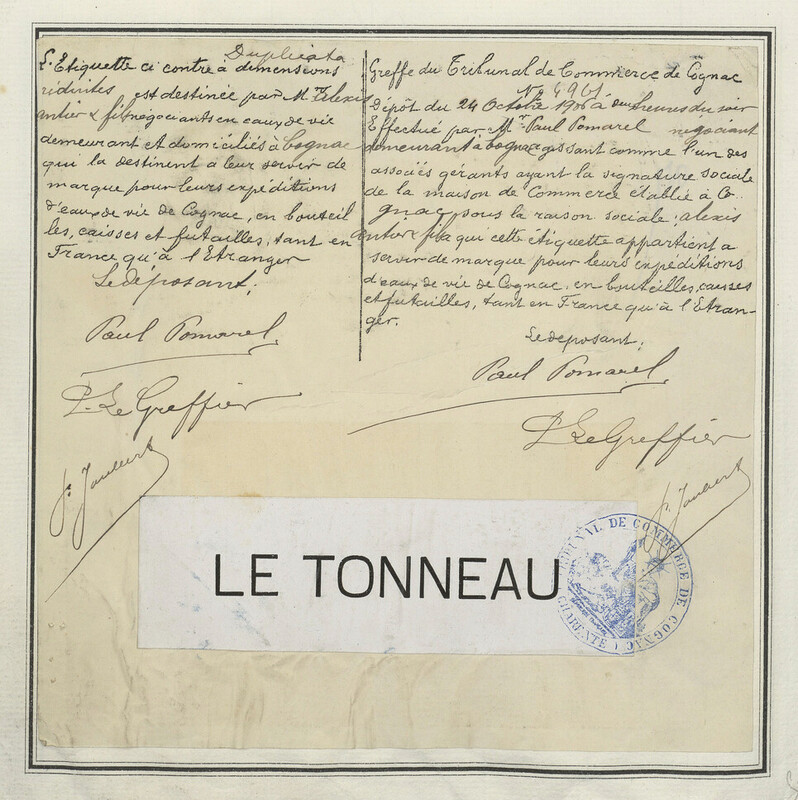 Duplicata
L'Etiquette ci contre à dimensions
réduites est destinée par Mrs Alexis
antier & fils négociants en eaux de vie
demeurant et domiciliés à Cognac
qui la destinent a leur servir de
marque pour leurs expéditions
d'eaux de vie de Cognac, en bouteil
les, caisses et futailles, tant en
France qu'à l'Etranger
Le déposant;
Paul Pomarel
P. Le Greffier
Greffe du Tribunal de Commerce de Cognac
No 4961
Dépôt du 24 Octobre 1906 à deux heures du soir
Effectué par Mr Paul Pomarel negociant
demeurant à Cognac agissant comme l'un des
associés gérants ayant la signature sociale
de la maison de Commerce établie à Co
gnac sous la raison sociale, alexis
antier & fils qui cette étiquette appartient a
servir de marque pour leurs expéditions
d'eaux de vie de Cognac, en bouteilles, caisses
et futailles, tant en France qu'à l'Etran-
ger.
Le deposant;
Paul Pomarel
P. Le Greffier
LE TONNEAU
TRIBUNAL DE COMMERCE DE COGNAC
(CHARENTE)